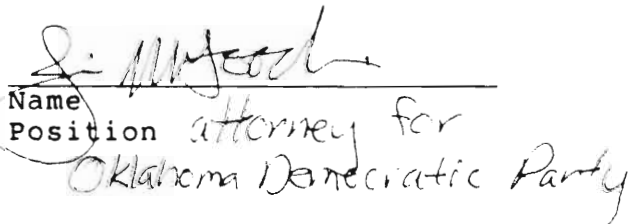 Name
Position attorney for
Oklahoma Democratic Party